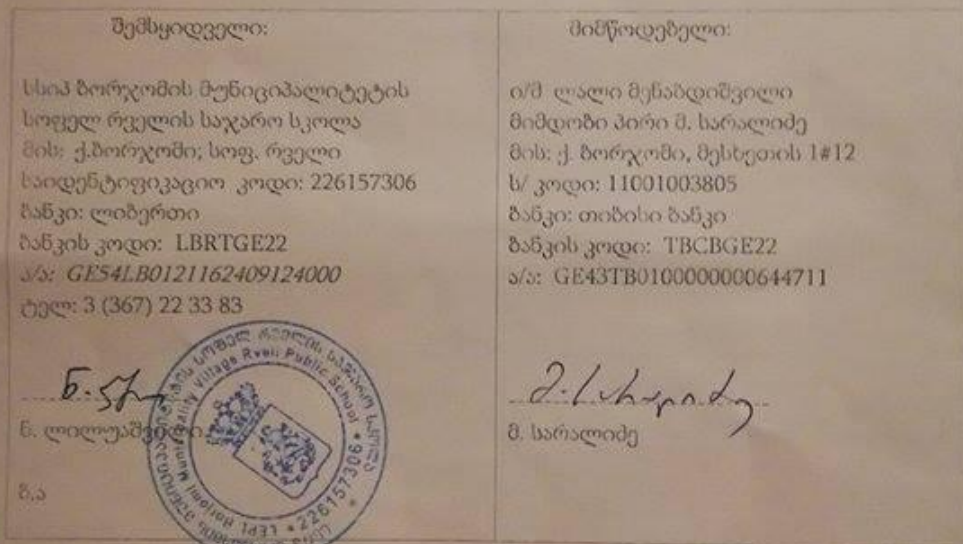 შემსყიდველი:
სსიპ ბორჯომის მუნიციპალიტეტის
სოფელ რველის საჯარო სკოლა
მის: ქ.ბორჯომი; სოფ. რველი
საიდენტიფიკაციო კოდი: 226157306
ბანკი: ლიბერთი
ბანკის კოდი: LBRTGE22
ა/ა: GE54LB0121162409124000
ტელ: 3 (367) 22 33 83
ნ. ლილუაშვილი
ბ.ა
სოფელ რველის საჯარო სკოლა
Municipality Village Rveli Public School
LEPL Borjomi
226157306
მიმწოდებელი:
ი/მ ლალი მენაბდიშვილი
მიმდობი პირი მ. სარალიძე
მის: ქ. ბორჯომი, მესხეთის 1#12
ს/ კოდი: 11001003805
ბანკი: თიბისი ბანკი
ბანკის კოდი: TBCBGE22
ა/ა: GE43TB0100000000644711
მ. სარალიძე
მ. სარალიძე